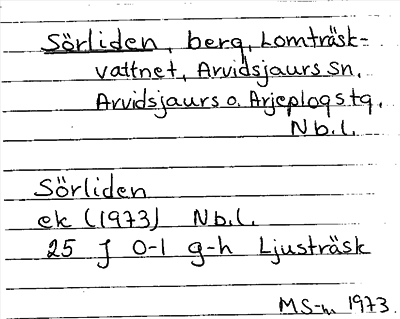 Sörliden, berg, Lomträsk-
vattnet, Arvidsjaurs sn.
Arvidsjaurs o. Arjeplogs tg.
Nb.l.
Sörliden
ek (1973) Nb.l.
25 J 0-1 g-h Ljusträsk
MS-n 1973.